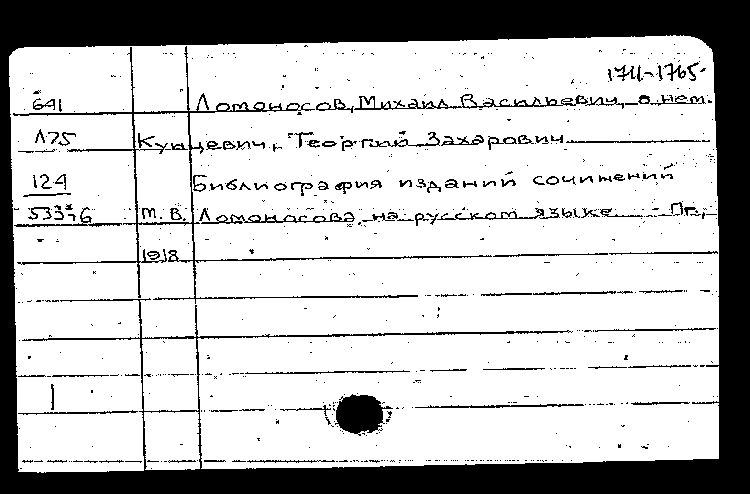 1711-1765.
641 Ломоносов, Михаил Васильевич, о нем.
Л75 Кунцевич, Георгий Захарович
124 Библиография изданий сочинений
М. В. Ломоносова на русском языке. - Пг.,
1918